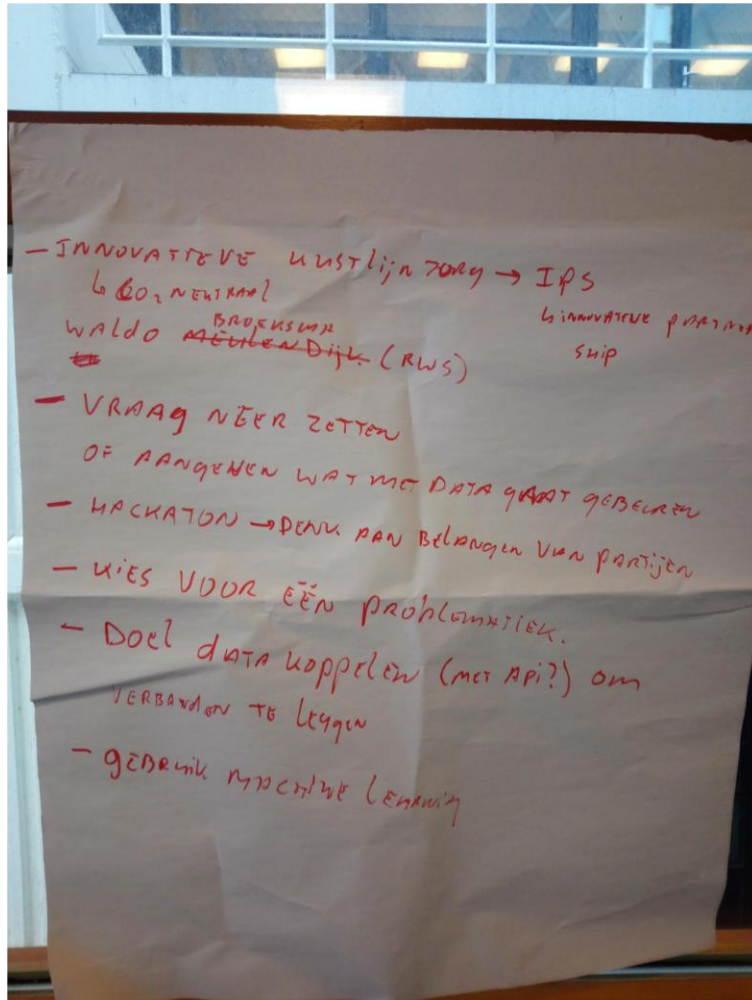 - INNOVATIEVE KUSTLIJNZORG → IPS
↳ CO₂ NEUTRAAL
↳ INNOVATIEVE PARTNER
SHIP
WALDO MEULENDIJK (RWS)
- VRAAG NEER ZETTEN
OF AANGEVEN WAT MET DATA GAAT GEBEUREN
- HACKATON → DENK AAN BELANGEN VAN PARTIJEN
- KIES VOOR ÉÉN PROBLEMATIEK.
- DOEL DATA KOPPELEN (MET API?) OM
VERBANDEN TE LEGGEN
- GEBRUIK MACHINE LEARNING